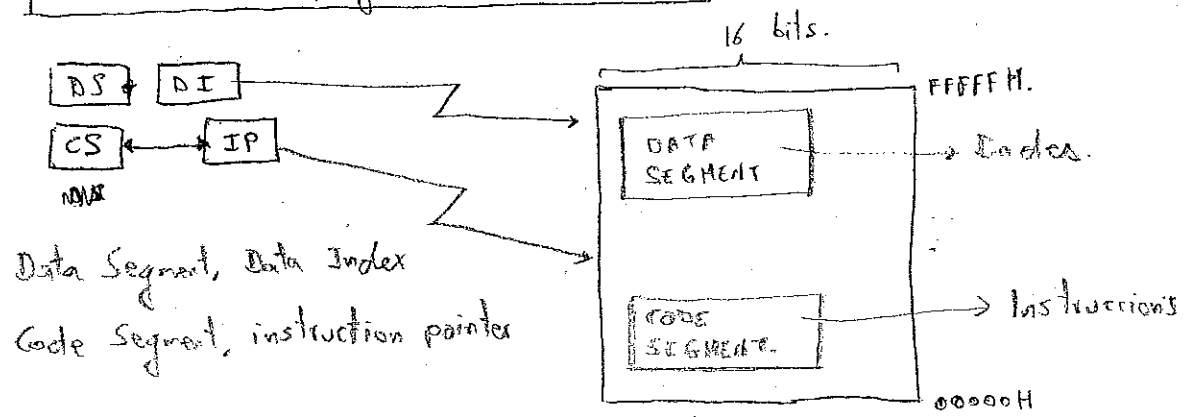 16 bits.
DS DI
FFFFF H.
DATA
SEGMENT
CS IP
Data Segment, Data Index
Code Segment, instruction pointer
CODE
SEGMENT.
Instructions
00000H